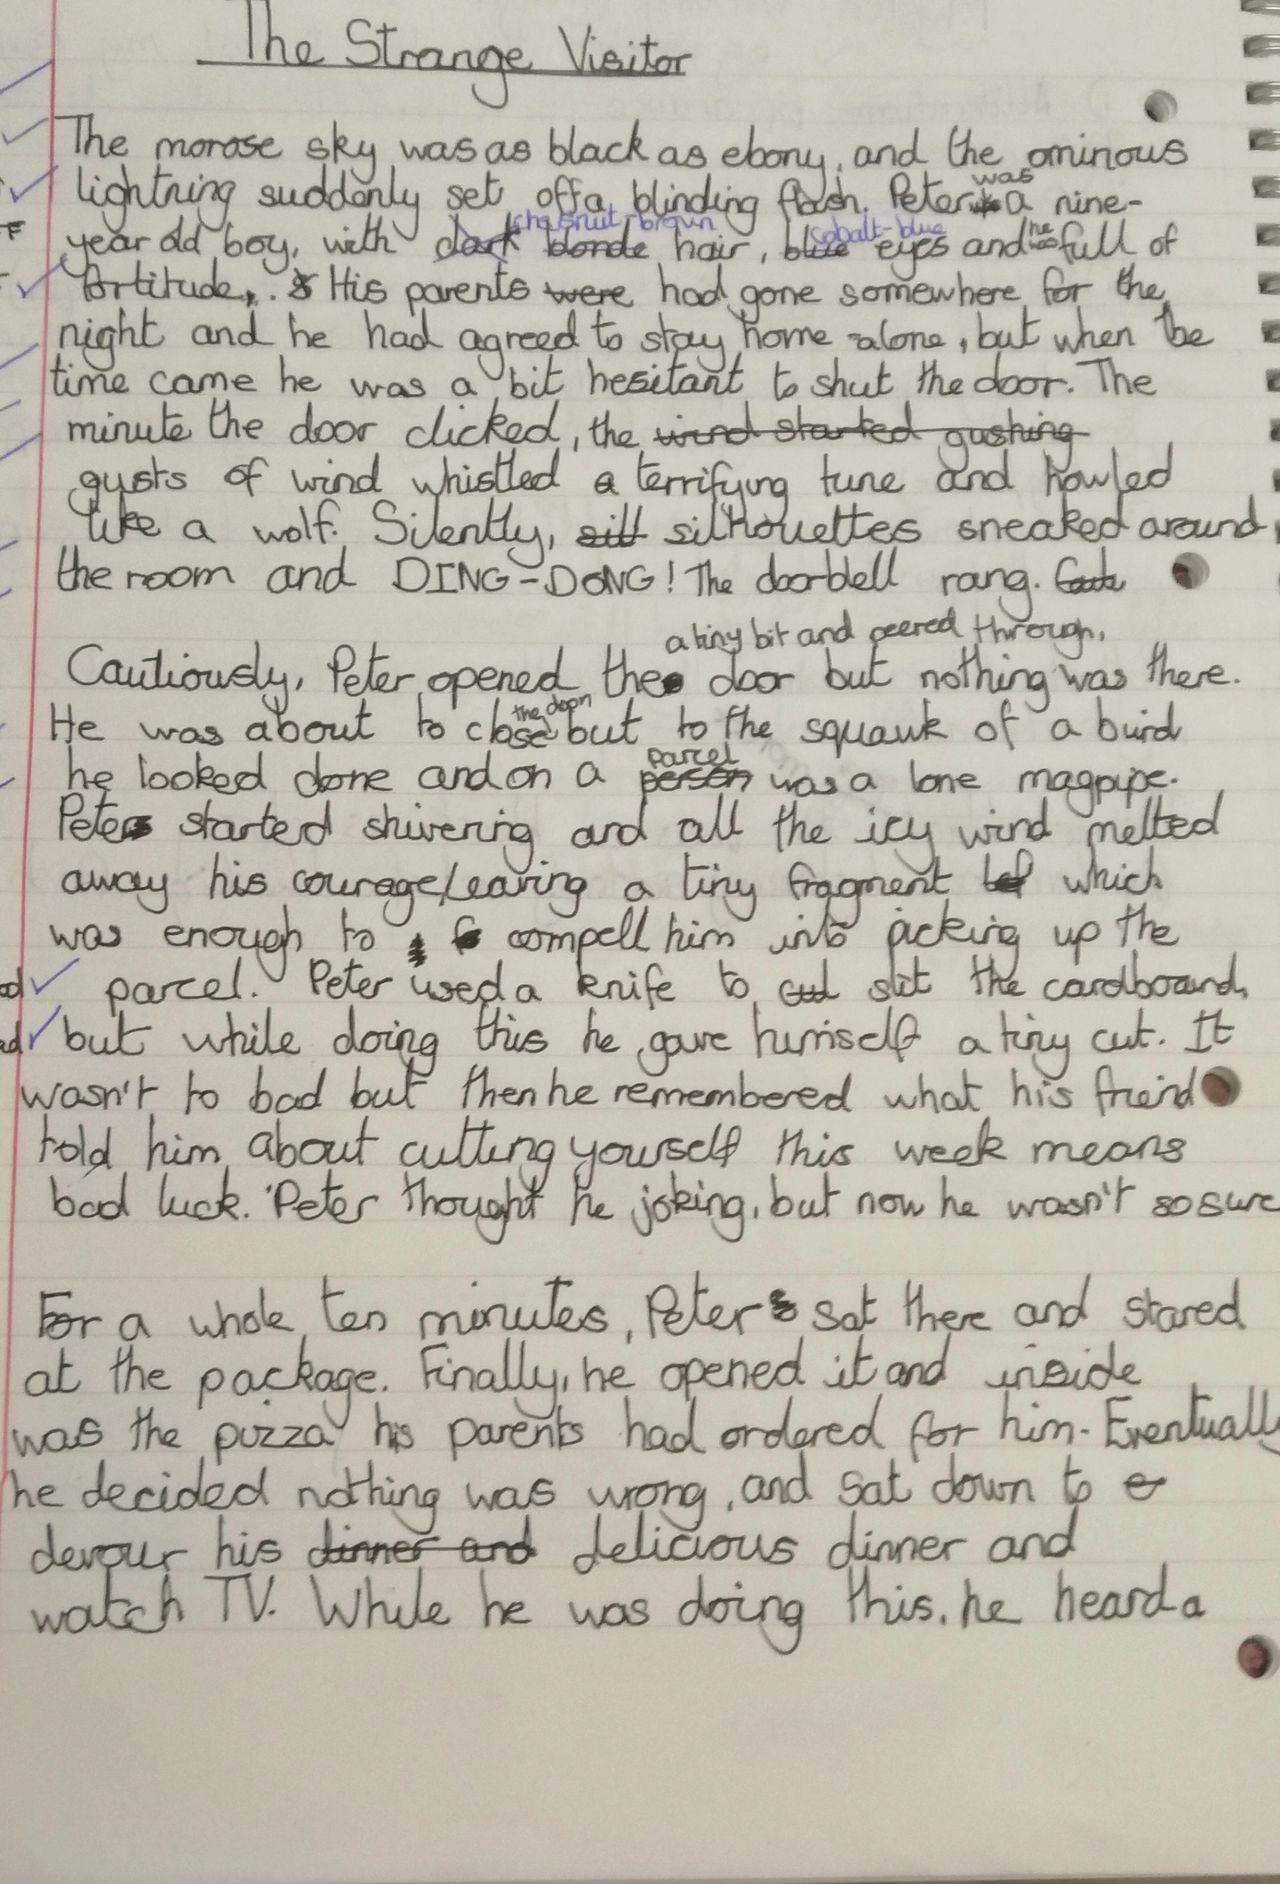 The Strange Visitor
The morose sky was as black as ebony, and the ominous
lightning suddenly set off a blinding flash. Peter was a nine-
year old boy, with chesnut-brown hair, cobalt-blue eyes and he was full of
fortitude. His parents were had gone somewhere for the
night and he had agreed to stay home alone, but when the
time came he was a bit hesitant to shut the door. The
minute the door clicked, the wind started gushing
gusts of wind whistled a terrifying tune and howled
like a wolf. Silently, sill silhouettes sneaked around
the room and DING-DONG! The doorbell rang.
a tiny bit and peered through,
Cautiously, Peter opened the door but nothing was there.
He was about to close the door but to the squawk of a burd
he looked done and on a parcel was a lone magpipe.
Peter started shivering and all the icy wind melted
away his courage, leaving a tiny fragment which
was enough to compell him into picking up the
parcel. Peter used a knife to cut slit the cardboard,
but while doing this he gave himself a tiny cut. It
wasn't to bad but then he remembered what his freind
told him about cutting yourself this week means
bad luck. Peter thought he joking, but now he wasn't so sure
For a whole ten minutes, Peter sat there and stared
at the package. Finally, he opened it and inside
was the pizza his parents had ordered for him. Eventually
he decided nothing was wrong, and sat down to
devour his dinner and delicious dinner and
watch TV. While he was doing this, he heard a